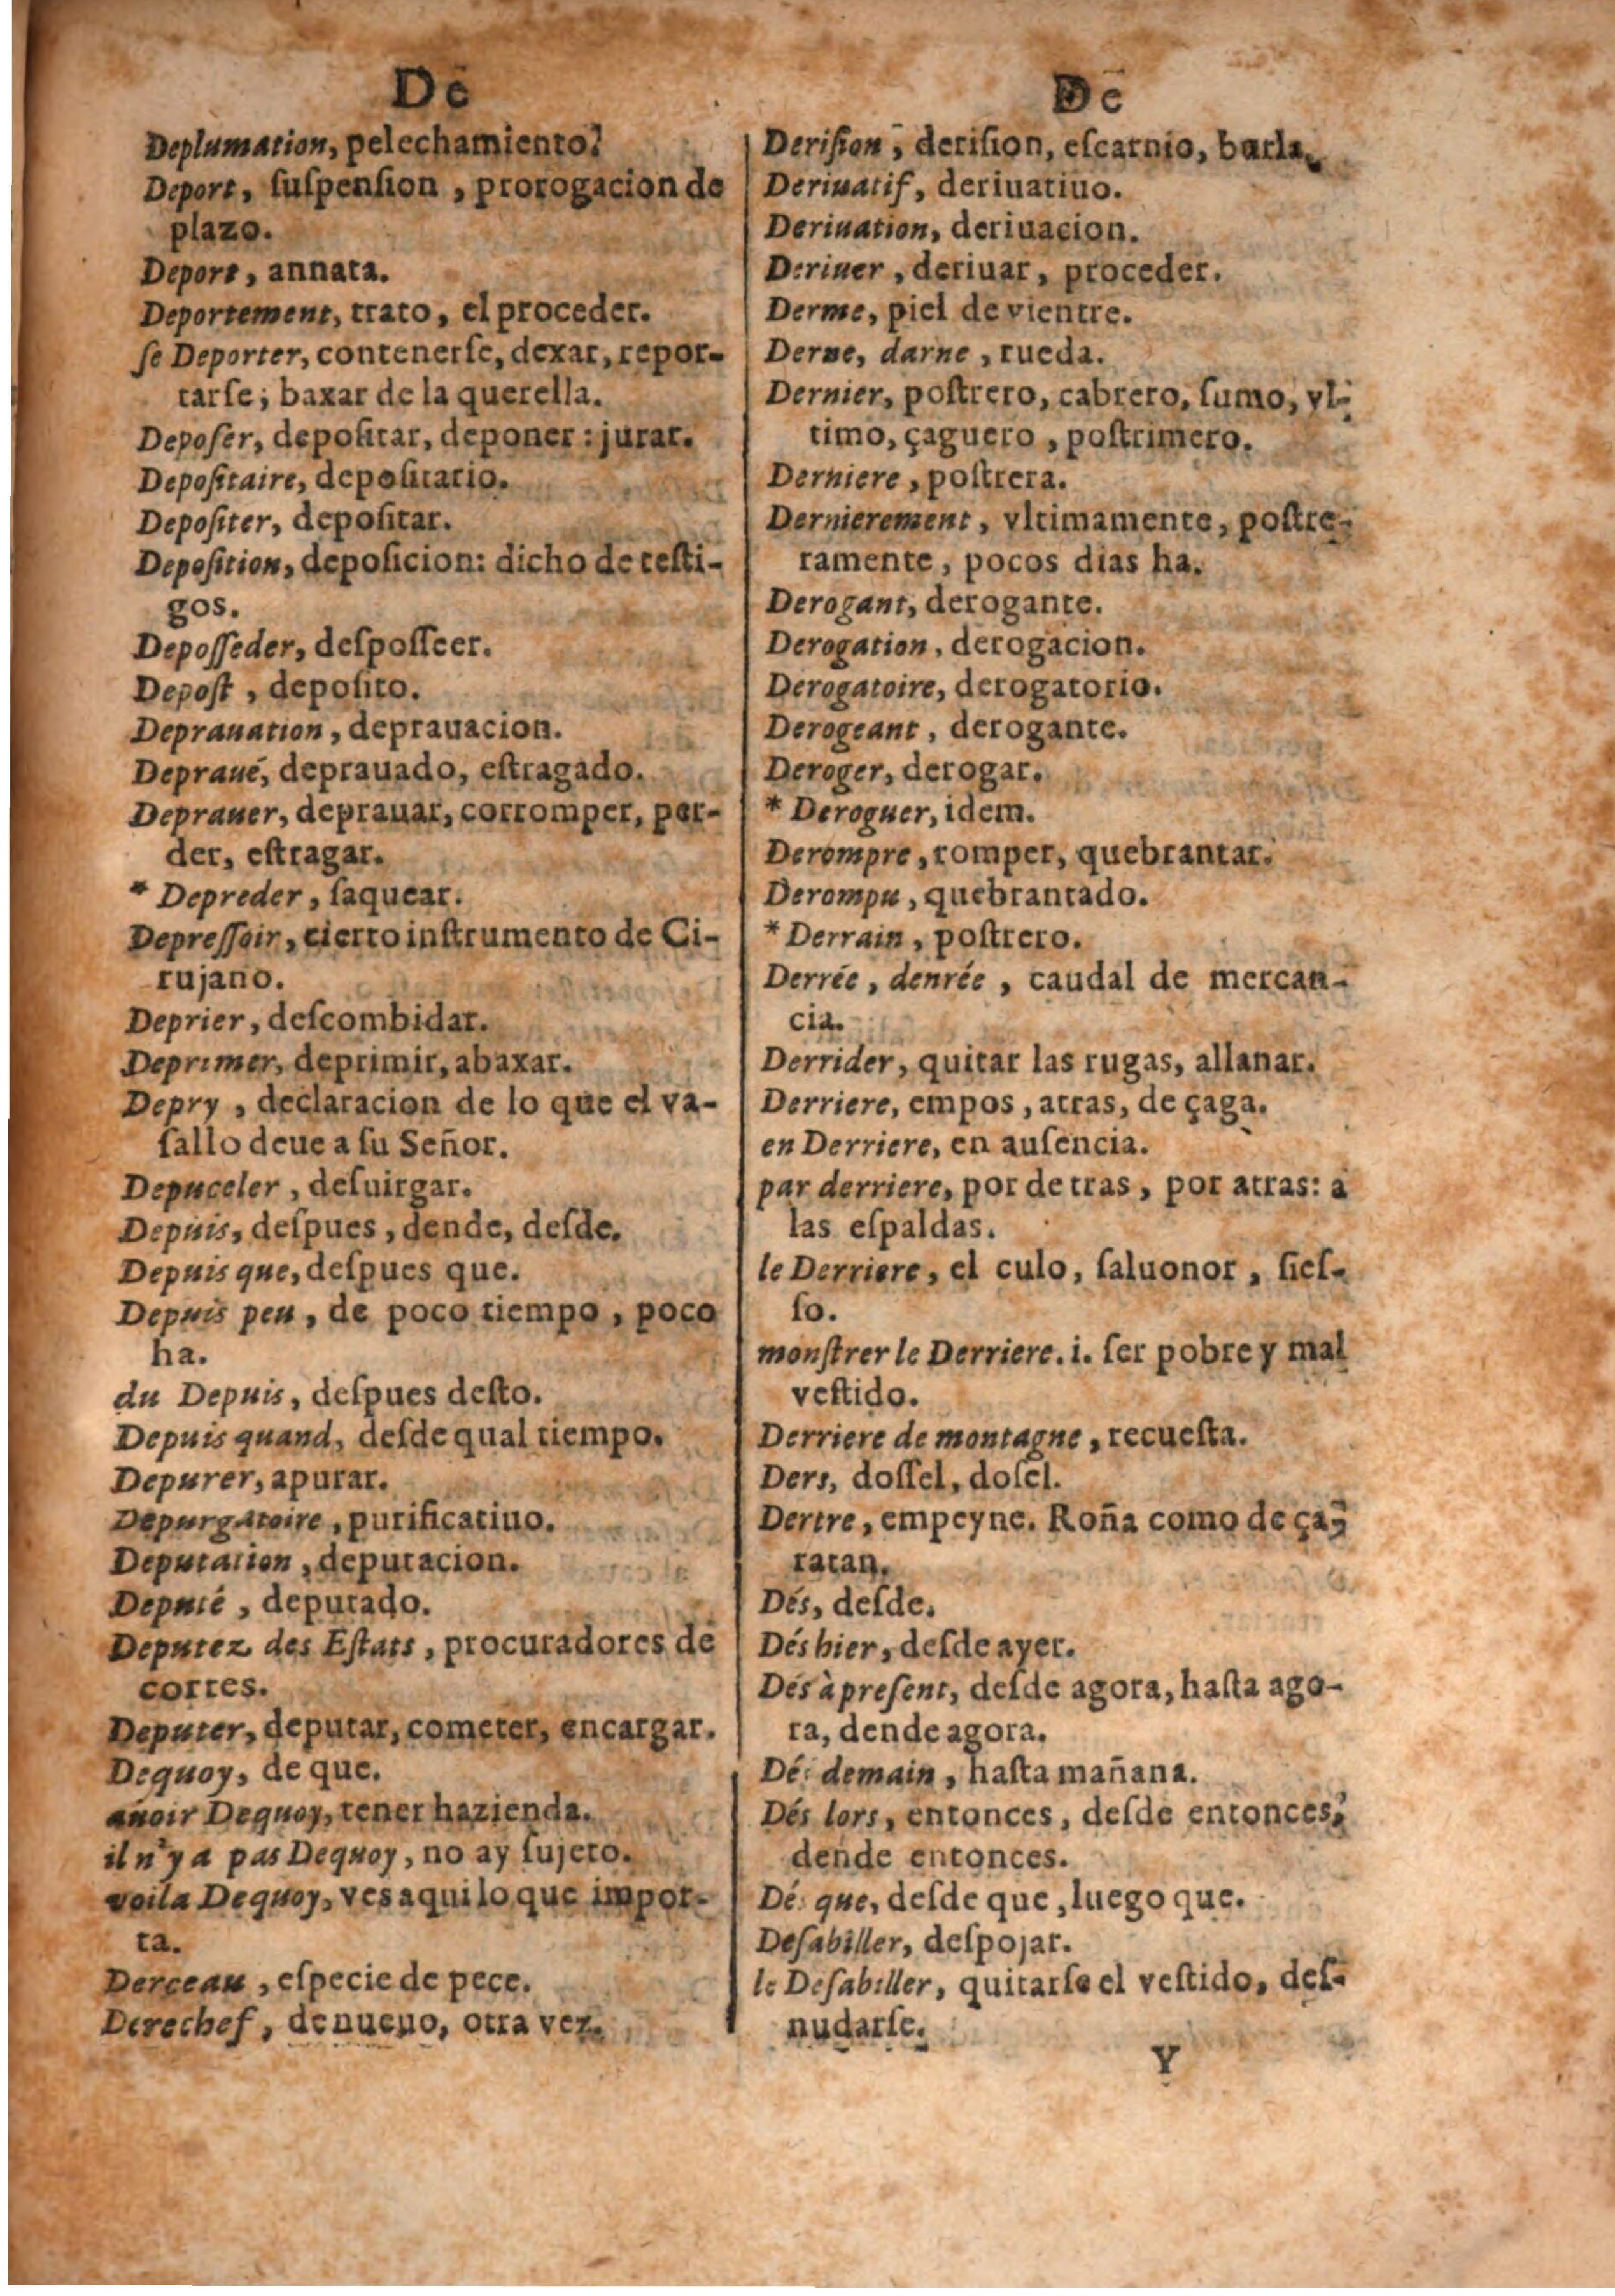 De
Deplumation, pelechamiento.
Deport, ſuſpenſion, prorogacion de
plazo.
Deport, annata.
Deportement, trato, el proceder.
ſe Deporter, contenerſe, dexar, repor-
tarſe; baxar de la querella.
Depoſer, depoſitar, deponer: jurar.
Depoſitaire, depoſitario.
Depoſiter, depoſitar.
Depoſition, depoſicion: dicho de teſti-
gos.
Depoſſeder, deſpoſſeer.
Depoſt, depoſito.
Deprauation, deprauacion.
Depraué, deprauado, eſtragado.
Deprauer, deprauar, corromper, per-
der, eſtragar.
* Depreder, ſaquear.
Depreſſoir, cierto inſtrumento de Ci-
rujano.
Deprier, deſcombidar.
Deprimer, deprimir, abaxar.
Depry, declaracion de lo que el va-
ſallo deue a ſu Señor.
Depuceler, deſuirgar.
Depuis, deſpues, dende, deſde.
Depuis que, deſpues que.
Depuis peu, de poco tiempo, poco
ha.
du Depuis, deſpues deſto.
Depuis quand, deſde qual tiempo.
Depurer, apurar.
Depurgatoire, purificatiuo.
Deputation, deputacion.
Deputé, deputado.
Deputez des Eſtats, procuradores de
cortes.
Deputer, deputar, cometer, encargar.
Dequoy, de que.
auoir Dequoy, tener hazienda.
il n'y a pas Dequoy, no ay ſujeto.
voila Dequoy, ves aqui lo que impor-
ta.
Derceau, eſpecie de pece.
Derechef, de nueuo, otra vez.
De
Deriſion, deriſion, eſcarnio, burla.
Deriuatif, deriuatiuo.
Deriuation, deriuacion.
Deriuer, deriuar, proceder.
Derme, piel de vientre.
Derne, darne, rueda.
Dernier, poſtrero, cabrero, ſumo, vl-
timo, çaguero, poſtrimero.
Derniere, poſtrera.
Dernierement, vltimamente, poſtre-
ramente, pocos dias ha.
Derogant, derogante.
Derogation, derogacion.
Derogatoire, derogatorio.
Derogeant, derogante.
Deroger, derogar.
* Deroguer, idem.
Derompre, romper, quebrantar.
Derompu, quebrantado.
* Derrain, poſtrero.
Derrée, denrée, caudal de mercan-
cia.
Derrider, quitar las rugas, allanar.
Derriere, empos, atras, de çaga.
en Derriere, en auſencia.
par derriere, por de tras, por atras: a
las eſpaldas.
le Derriere, el culo, ſaluonor, ſieſ-
ſo.
monſtrer le Derriere. i. ſer pobre y mal
veſtido.
Derriere de montagne, recueſta.
Ders, doſſel, doſel.
Dertre, empeyne. Roña como de ça-
ratan.
Dés, deſde.
Dés hier, deſde ayer.
Dés à preſent, deſde agora, haſta ago-
ra, dende agora.
Dés demain, haſta mañana.
Dés lors, entonces, deſde entonces,
dende entonces.
Dés que, deſde que, luego que.
Deſabiller, deſpojar.
le Deſabiller, quitarſe el veſtido, deſ-
nudarſe.
Y